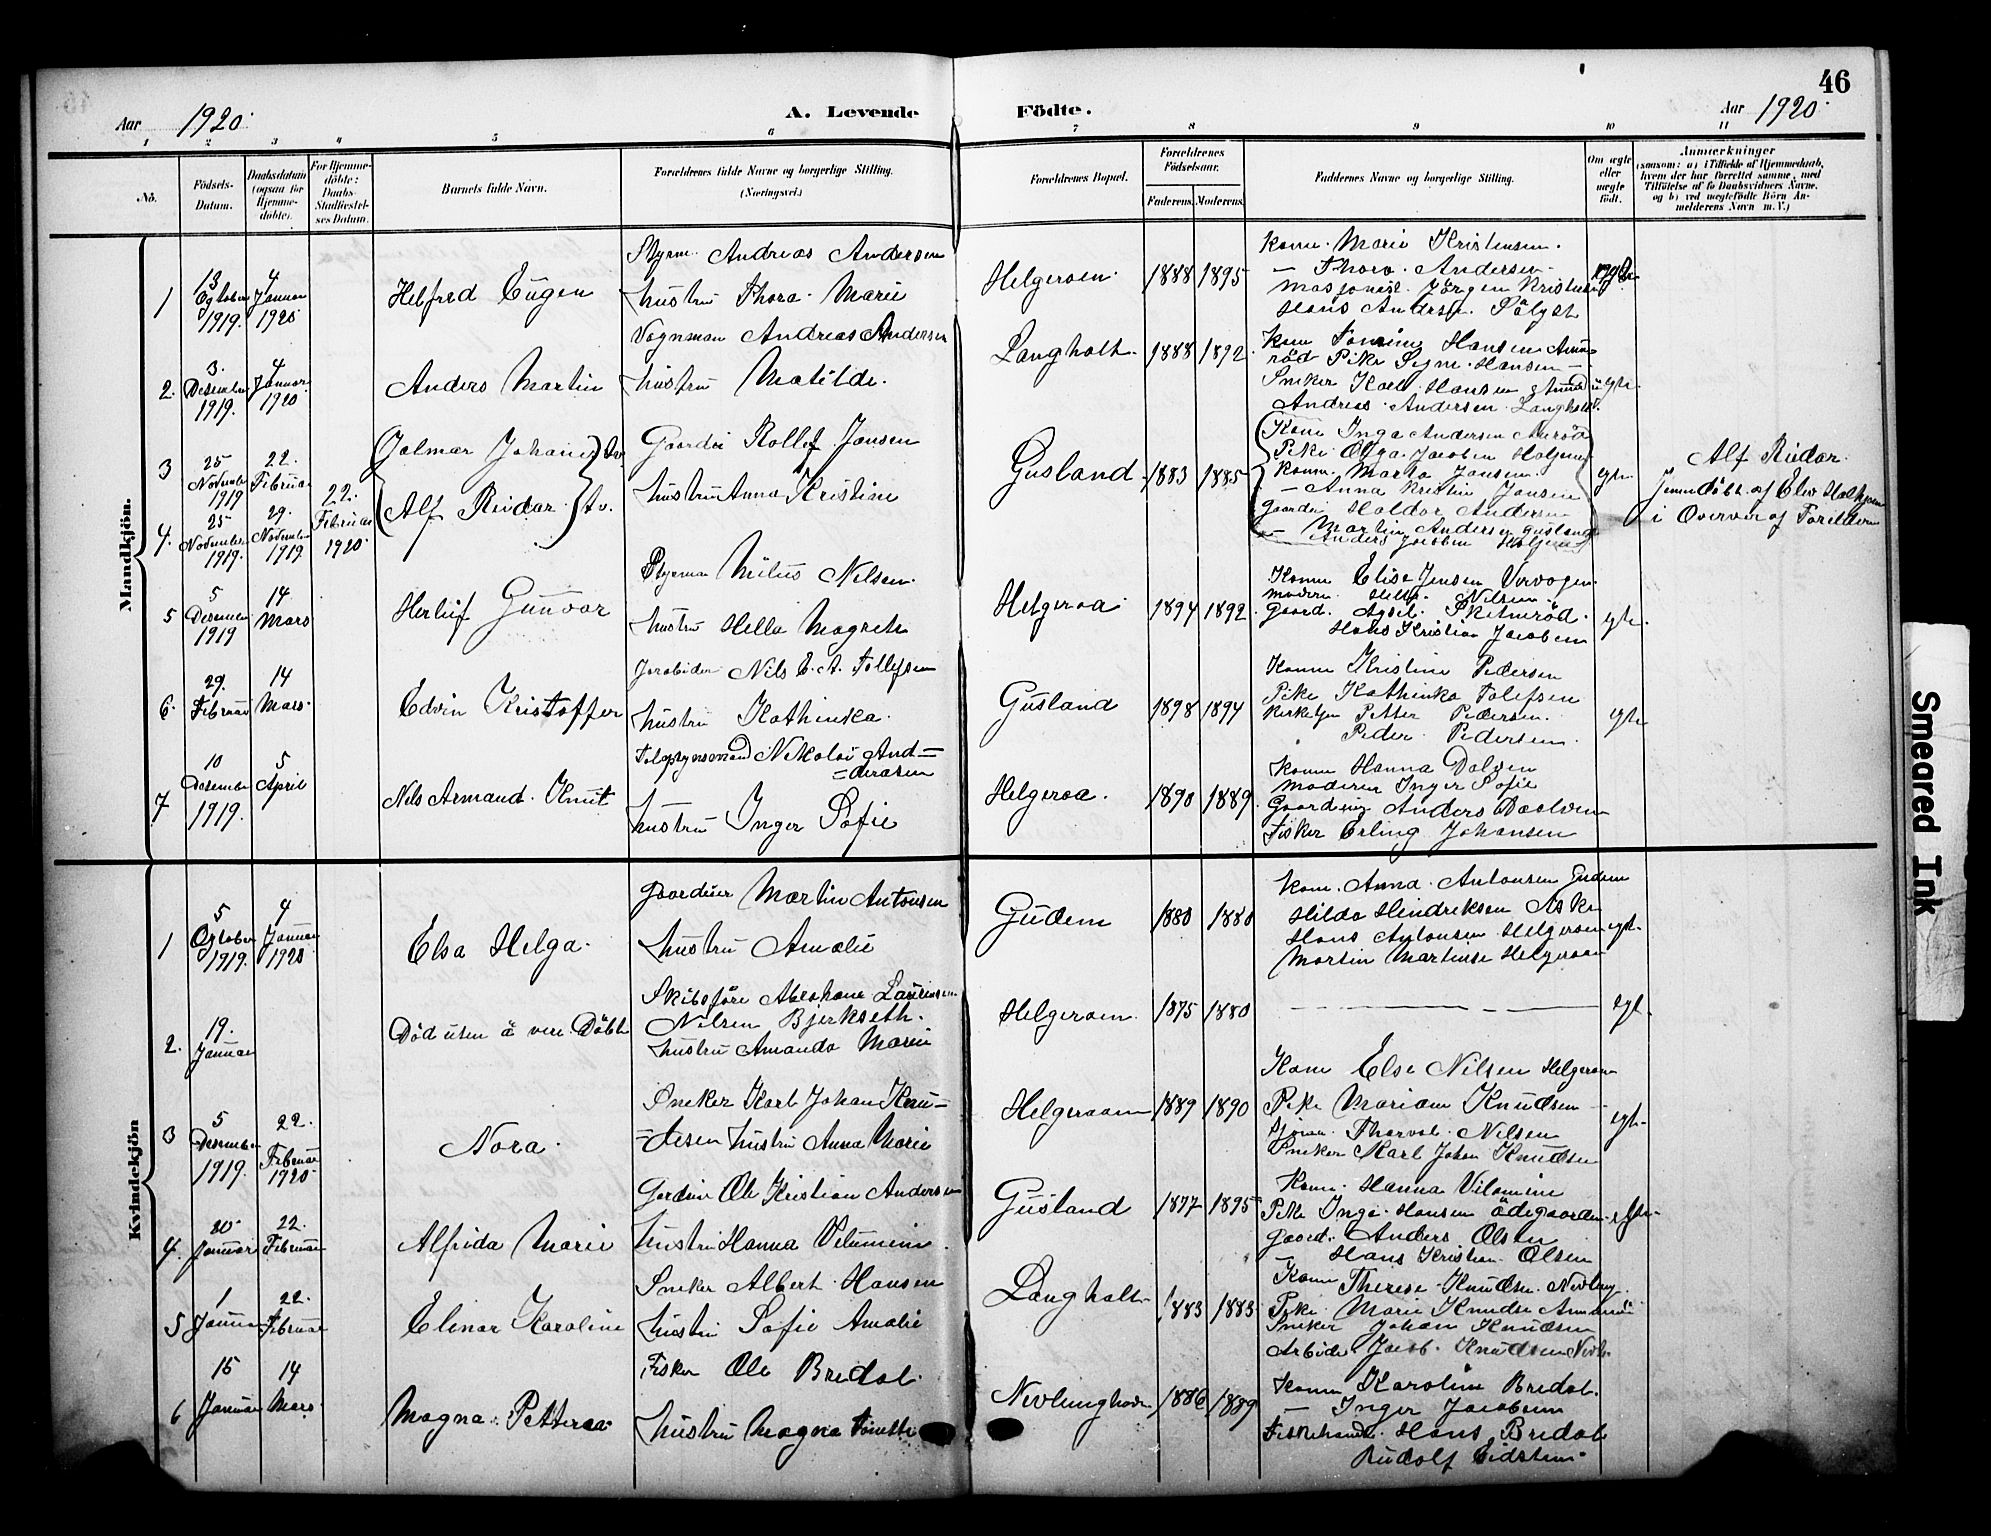 46
Aar 1920. A. Levende Födte. Aar 1920.
1 2 3 4 5 6 7 8 9 10 11
No.
Födsels-
Datum.
Daabsdatum
(ogsaa for
Hjemme-
döbte).
For Hjemme-
döbte:
Daabs-
Stadfæstel-
ses Datum.
Barnets fulde Navn.
Forældrenes fulde Navne og borgerlige Stilling.
(Næringsvei.)
Forældrenes Bopæl.
Forældrenes
Födselsaar.
Faderens. Moderens.
Faddernes Navne og borgerlige Stilling.
Om ægte
eller
uægte
födt.
Anmærkninger
(saasom: a) i Tilfælde af Hjemmedaab,
hvem der har forrettet samme, med
Tilföielse af to Daabsvidners Navne,
og b) ved uægtefödte Börn An-
melderens Navn m. V.)
Mandkjön.
1
13
Ogtober
1919.
4
Januar
1920
Helfred Eugen
Styrm. Andreas Andersen
hustru Thora Marie
Helgeroen 1888 1895
Kone Marie Kristensen.
— Thora Andersen
Jörgen Kristensen
Hans Andersen
2.
3.
Desember
1919.
4
Januar
1920
Anders Martin
Vognman Andreas Andersen
hustru Matilde.
Langholt 1888 1892
Kone Hansen
Pike Signe Hansen
Sneker Karl Hansen
Andreas Andersen Langholt.
egte.
3
25
November
1919
22.
Februar
Jalmar Johanes Tv.
Gaardei Rollef Jansen
hustru Anna Kristine
Gusland 1883 1885
Kone Inga Andersen
Pike Olga Jacobsen
Kone Marta Jansen.
— Anna Kristin Jansen
Gaardei Haldor Andersen
— Martin Andersen Gusland
Anders Jacobsen
egte.
4.
25
November
1919.
29.
November
1919
22.
Februar
1920
Alf Reidar. Tv.
Alf Reidar.
Jemmedöbt af Elev
i Overver af Foreldern
5
5
Desember
1919
14
Mars
Herleif Gunvar
Styrman Milius Nilsen.
hustru Hella Magreth
Helgeroa 1894 1892
Kone Elise Jensen
Modern Hella Nilsen
Gaard. Aksel
Hans Kristian Jacobsen
egte.
6.
29.
Februar
14
Mars.
Edvin Kristoffer
Nils E. A. Tollefsen
hustru Kathinka.
Gusland 1898 1894
Kone Kristine Pedersen
Pike Kathinka Tolefsen
Petter Pedersen.
Peder Pedersen.
egte
7
10
Desember
1919.
5
April
Nils Armand Knut
Nikolai And=
=derasen
hustru Inger Sofie
Helgeroa. 1890 1889.
Kone Hanna Dalven
Moderen Inger Sofie
Anders Daalven
Fisker Erling Johansen
Kvindekjön
1
5
Ogtober
1919.
4
Januar
1920
Elsa Helga.
Gaardeier Martin Antonsen
hustru Amalie
Gudem 1880 1880
Kone Anna Antonsen Gudem
Hilda Hindriksen Aske
Hans Antonsen Helgeroen
Martin Martinse Helgeroen
egt.
2.
19.
Januar
Död uten å vere Döbt
Skibsföre Abrahane Laurensen
Nilsen Bjerkseth.
hustru Amanda Marie
Helgeroen. 1875 1880
egt.
3
5
Desember
1919.
22.
Februar
1920
Nora.
Sneker Karl Johan Knu=
=desen hustru Anna Marie
Helgeroaen 1889 1890
Kone Else Nilsen Helgeroa
Pike Mariam Knudsen
Thorval Nilsen
Sneker Karl Johan Knudsen
egte
4.
20
Januar
22.
Februar
Alfrida Marie
Gardeie Ole Kristian Andersen
hustru Hanna Vilumine.
Gusland 1877 1895
Kone Hanna Vilomine
Pike Inga Hansen Ödegaarden
Gaard. Anders Olsen
— Hans Kristian Olsen
egte.
5
1
Januar
22.
Februar
Elinar Karoline
Sneker Albert Hansen
hustru Sofie Amalie
Langholt 1883 1883
Kone Therese Knudsen
Pike Marie Knudse
Sneker Johan Knudsen
Arbeide Jacob Knudsen
6
15
Januar
14
Mars
Magna Petterea
Fisker Ole Bredal.
hustru Magna Tonette
Nevlunghavn 1886 1889
Kone Karoline Bredal.
— Inger Jacobsen
Hans Bredal
Rudolf Eidsten.
Smeared Ink